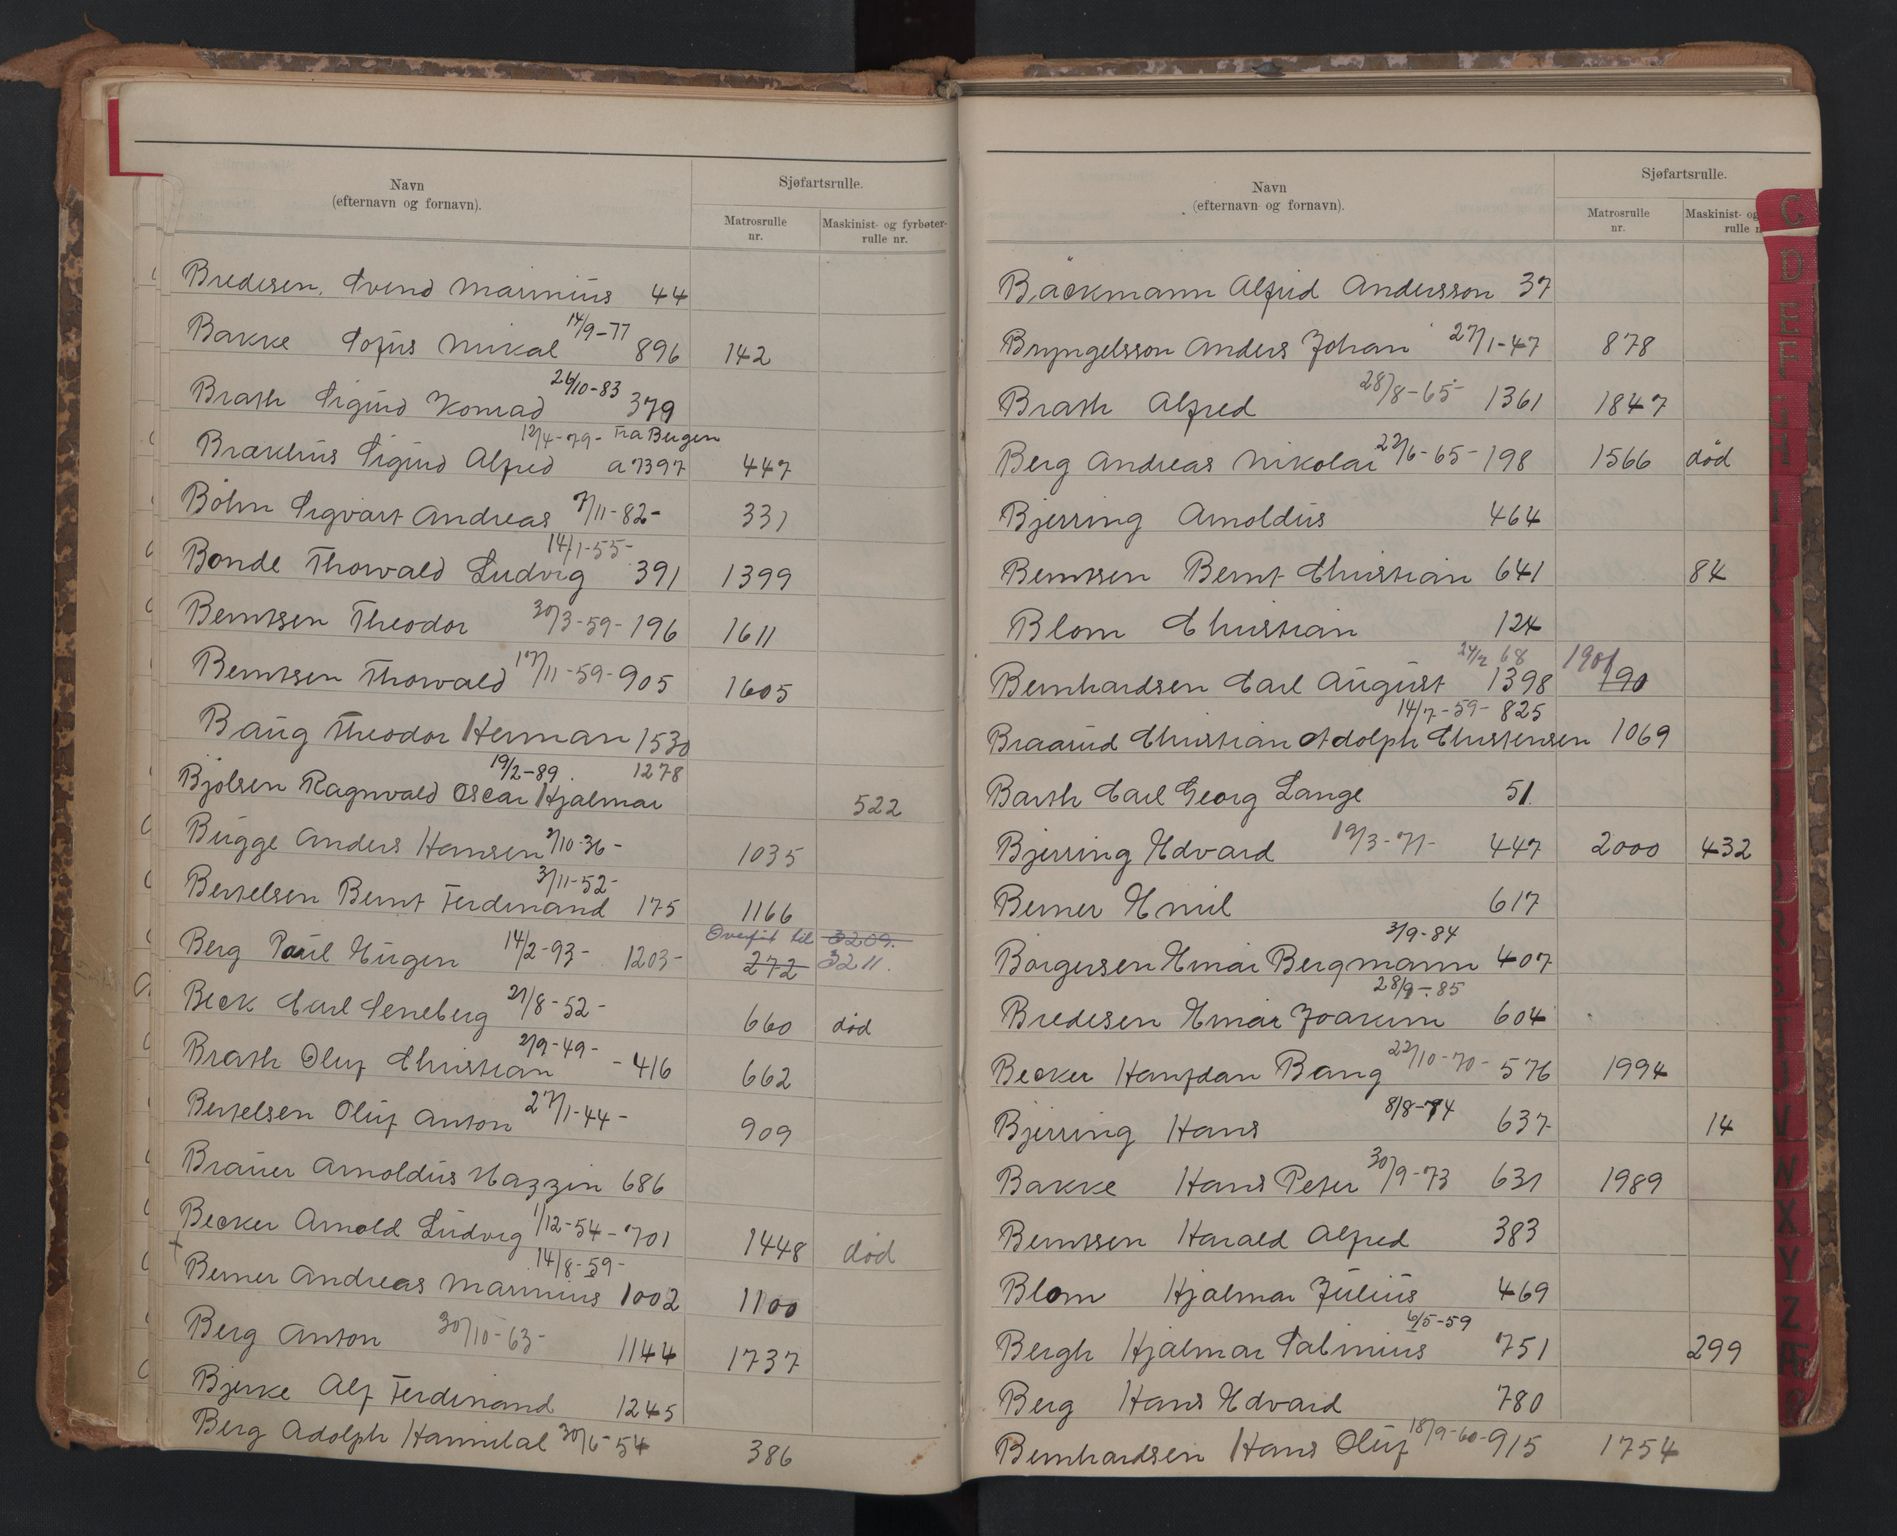 Navn
(efternavn og fornavn).
Sjøfartsrulle.
Matrosrulle
nr.
Maskinist- og fyrbøter-
rulle nr.
Bredesen, Svend Marinius 44
Bakke Sofus Mikal 14/9-77 896 142
Brath Sigurd Konrad 26/10-83 379
12/4-79- Fra Bergen
Brækhus Sigurd Alfred a 7397 447
Böhn Sigvart Andreas 7/11-82- 331
14/1-55-
Bonde Thorvald Ludvig 391 1399
Berntsen Theodor 30/3-59- 196 1611
Berntsen Thorvald 17/11-59- 905 1605
Baug Theodor Herman 1530
19/2-89. 1278
Bjølsen Ragnvald Oscar Hjalmar 522
Bugge Anders Hansen 2/10-36- 1035
3/11-52-
Bertelsen Bernt Ferdinand 175 1166
Overført til 3209.
Berg Paul Eugen 14/2-93- 1203- 272 3211.
Beck Carl Seneberg 27/8-52- 660 død
Brath Oluf Christian 2/9-49- -416 662
Bertelsen Oluf Anton 27/1-44- 909
Brauer Arnoldus Hazzin 686
Becker Arnold Ludvig 1/12-54- 701 1448 død
14/8-59-
Berner Andreas Marinius 1002 1100
Berg Anton 30/10-63- 1144 1737
Bjerke Alf Ferdinand 1245
Berg Adolph Hannibal 30/6-54 386
Navn
(efternavn og fornavn).
Sjøfartsrulle.
Matrosrulle
nr.
Maskinist- og
rulle n
Bäckmann Alfred Andersson 37
Bryngelsson Anders Johan 27/1-47 878
Brath Alfred 28/8-65- 1361 1847
Berg Andreas Nikolai 22/6-65- 198 1566 død
Bjerring Arnoldus 464
Berntsen Bernt Christian 641 84
Blom Christian 124
24/2 68 1901
Bernhardsen Carl August 1398 190
14/7-59- 825
Braarud Christian Adolph Christensen 1069
Barth Carl Georg Lange 51.
Bjerring Edvard 19/3-71- 447 2000 432
Berner Emil 617
3/9-84
Borgersen Einar Bergmann 407
28/9-85
Bredesen Einar Joakim 604
Becker Hanfdan Bang 22/10-70- 576 1994
Bjerring Hans 8/8-74 637 14
Bakke Hans Peter 30/9-73 631 1989
Berntsen Harald Alfred 383
Blom Hjalmar Julius 469
6/5-59
Bergh Hjalmar Salinius 751 299
Berg Hans Edvard 780
Bernhardsen Hans Oluf 18/9-60- 915 1754